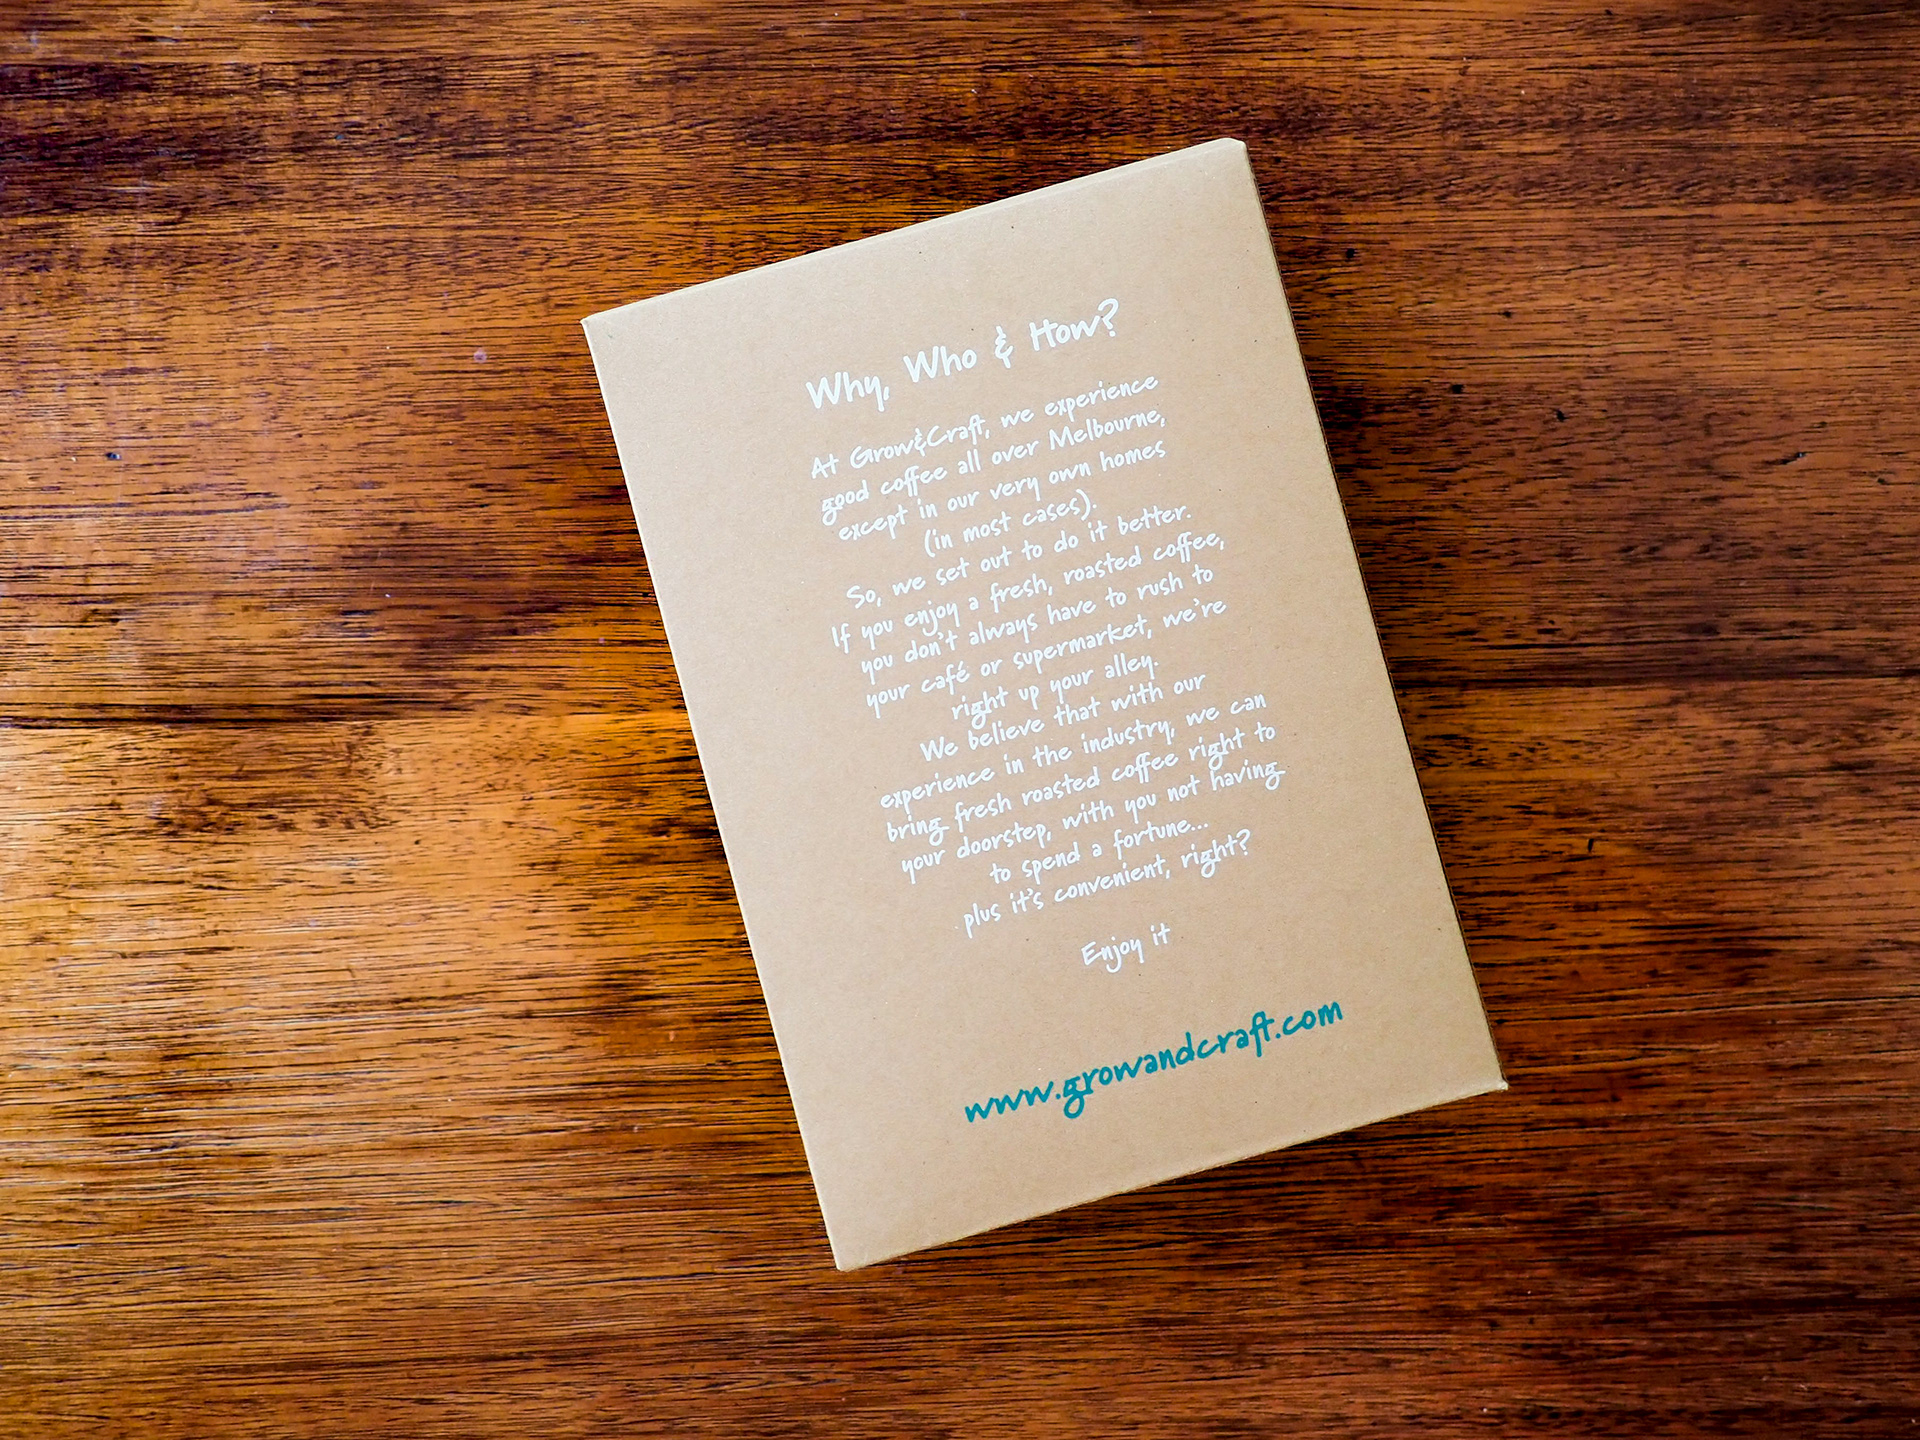 Why, Who & How?
At Grow&Craft, we experience
good coffee all over Melbourne,
except in our very own homes
(in most cases).
So, we set out to do it better.
If you enjoy a fresh, roasted coffee,
you don't always have to rush to
your café or supermarket, we're
right up your alley.
We believe that with our
experience in the industry, we can
bring fresh roasted coffee right to
your doorstep, with you not having
to spend a fortune...
plus it's convenient, right?
Enjoy it
www.growandcraft.com